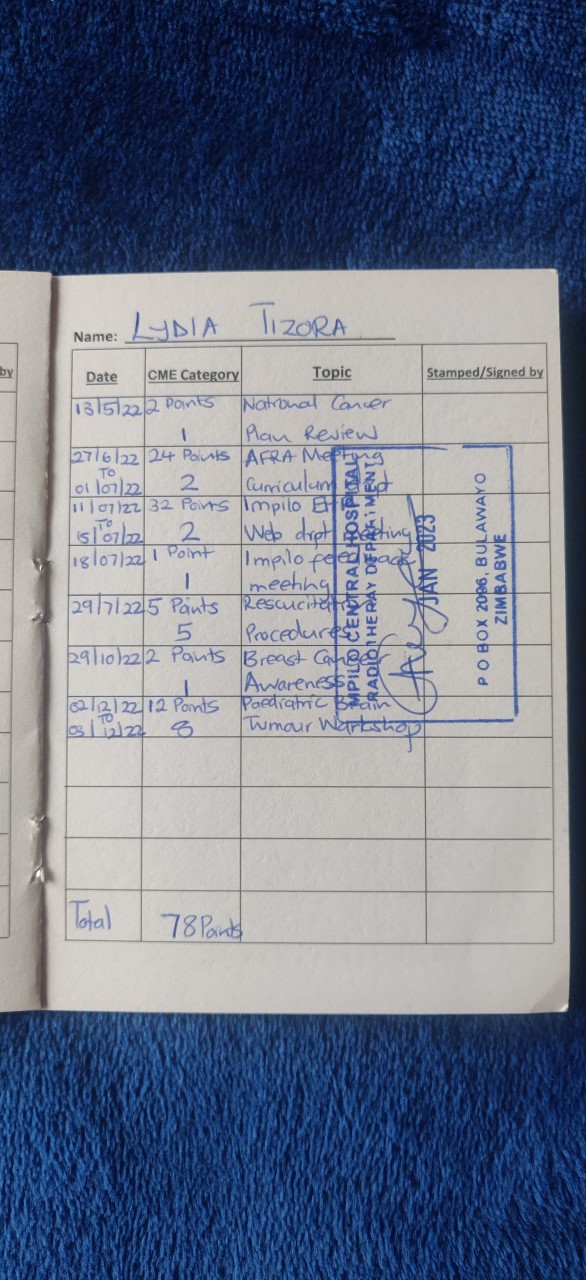 by
Name: LYDIA TIZORA
Date CME Category Topic Stamped/Signed by
13/5/22 2 Points National Cancer
1 Plan Review
27/6/22 24 Points AFRA Meeting
TO
01/07/22 2 Curriculum
11/07/22 32 Points Impilo
TO
15/07/22 2 Web drpt meeting
18/07/22 1 Point Impilo feed back
1 meeting
29/7/22 5 Points Rescucitation
5 Procedures
29/10/22 2 Points Breast Cancer
1 Awareness
02/12/22 12 Points Paediatric Brain
TO
03/12/22 8 Tumour Workshop
Total 78 Points
MPILO CENTRAL HOSPITAL
RADIOTHERAY DEPARTMENT
JAN 2023
P O BOX 2096, BULAWAYO
ZIMBABWE